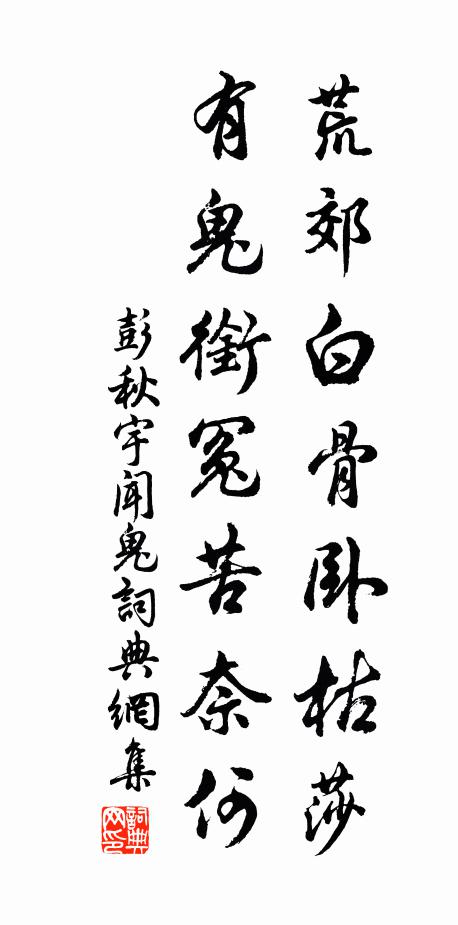 荒郊白骨卧枯莎
有鬼銜冤苦奈何
彭秋宇聞鬼詞典網集
詞典网印